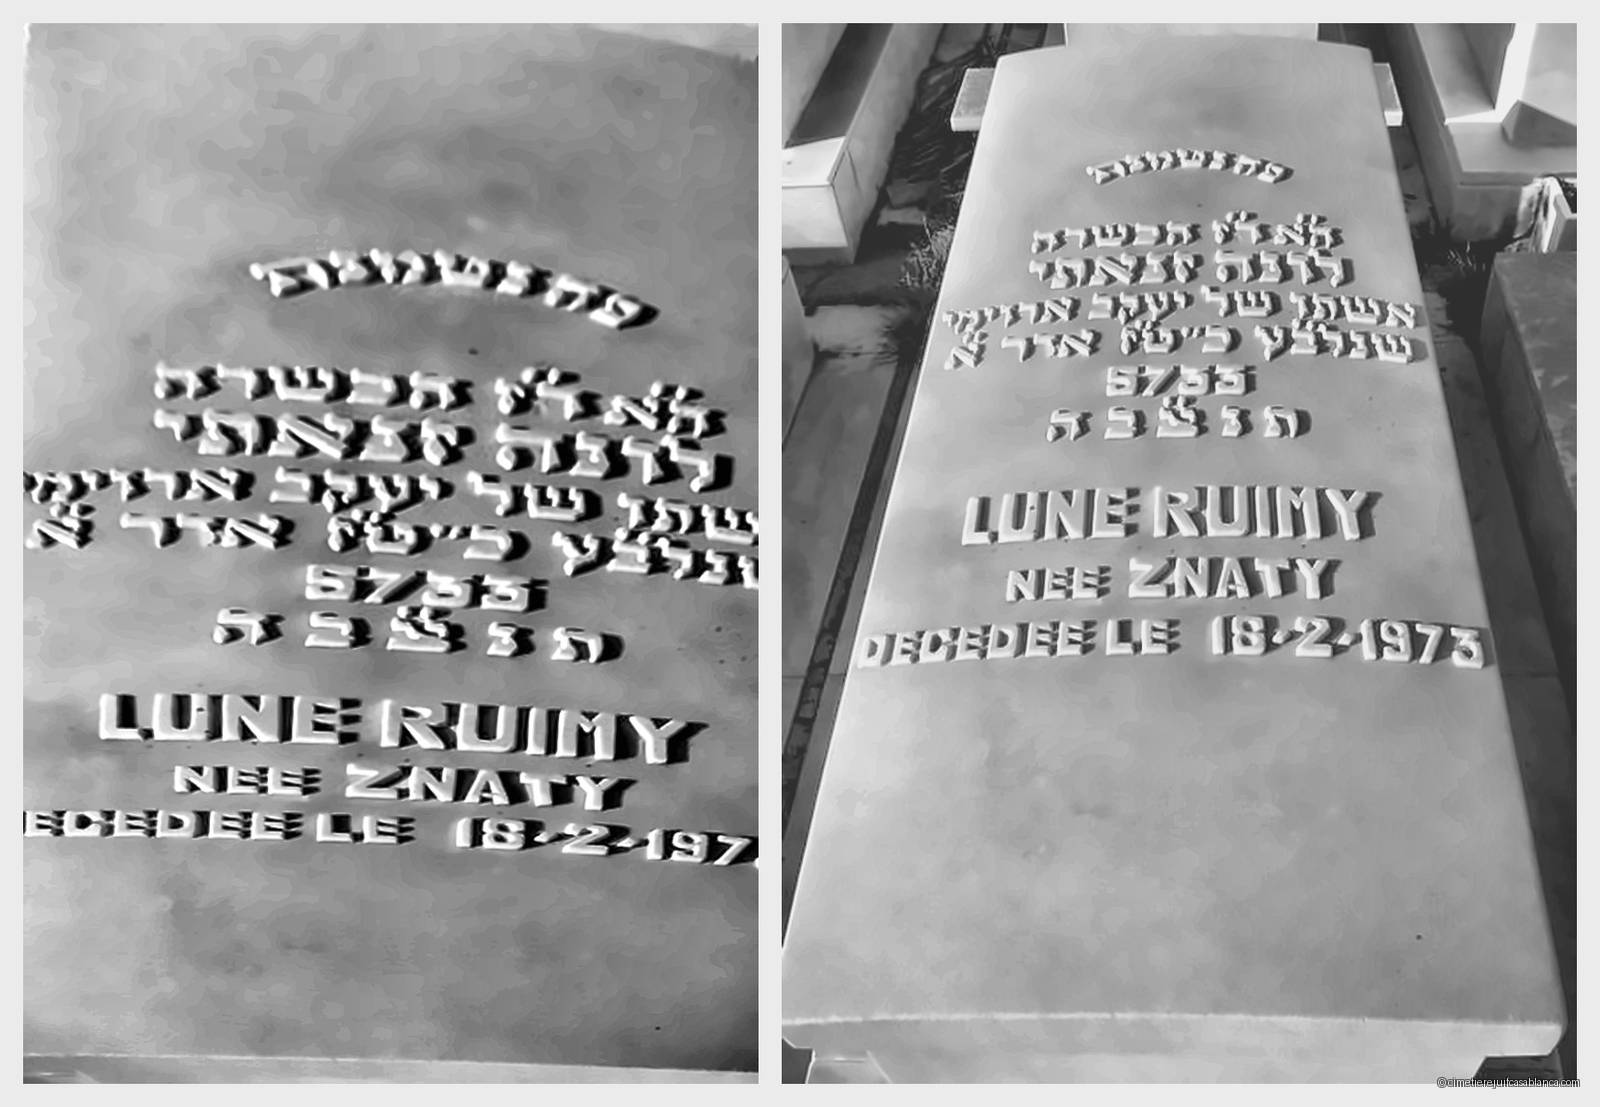 פה נטמנה
הכשרה
לונה זנאתי
שתו של יעקב ארוימי
נלב״ע ב״י ט״ז אדר א׳
5733
ת נ צ״ ב ה
LUNE RUIMY
NEE ZNATY
ECEDEE LE 18-2-197
פה נטמנה
הכשרה
לונה זנאתי
אשתו של יעקב ארוימי
שנלב״ע ב״י ט״ז אדר א׳
5733
ת נ צ״ ב ה
LUNE RUIMY
NEE ZNATY
DECEDEE LE 18-2-1973
©cimetierejuifcasablanca.com